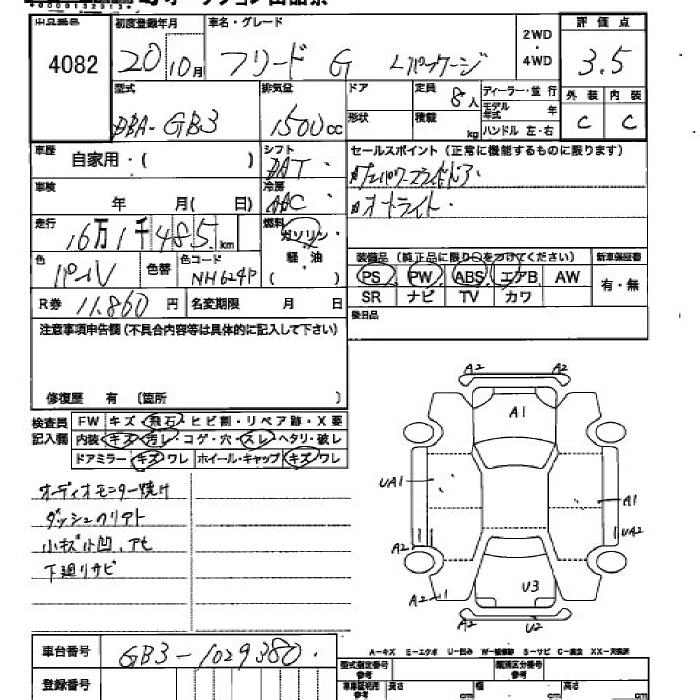 出品番号 初度登録年月 車名・グレード 2WD・4WD 評価点
4082 20 10月 フリード G Lパッケージ 3.5
型式 排気量 ドア 定員 8人 ディーラー・並行 外装 内装
DBA-GB3 1500cc 形状 積載 kg モデル年式 年 ハンドル 左・右 C C
車歴 自家用・( ) シフト DAT セールスポイント(正常に機能するものに限ります)
車検 年 月( 日) 冷房 AAC
オートライト
走行 16万1千485km 燃料 ガソリン・軽油( )
色 パール 色替 色コード NH624P 装備品(純正品に限り○をつけてください) 新車保証書
PS PW ABS エアB AW 有・無
R券 11,860円 名変期限 月 日 SR ナビ TV カワ
注意事項申告欄(不具合内容等は具体的に記入して下さい) 後日品
修復歴 有 〔箇所 〕
検査員記入欄 FW キズ・飛石・ヒビ割・リペア跡・X要
内装・キズ・汚レ・コゲ・穴・スレ・ヘタリ・破レ
ドアミラー キズ・ワレ ホイール・キャップ キズ・ワレ
オーディオモニター焼け
小キズ凹、アセ
下廻りサビ
A2 A2
A1
UA1 A1
UA2
A2
U3
A2 U2
車台番号 GB3-1029380
A-キズ E-エクボ U-凹み W-補修跡 S-サビ C-腐食 XX-交換済
登録番号 型式指定番号 参考 類別区分番号 参考
車庫証明用 参考 長さ cm 幅 cm 高さ cm